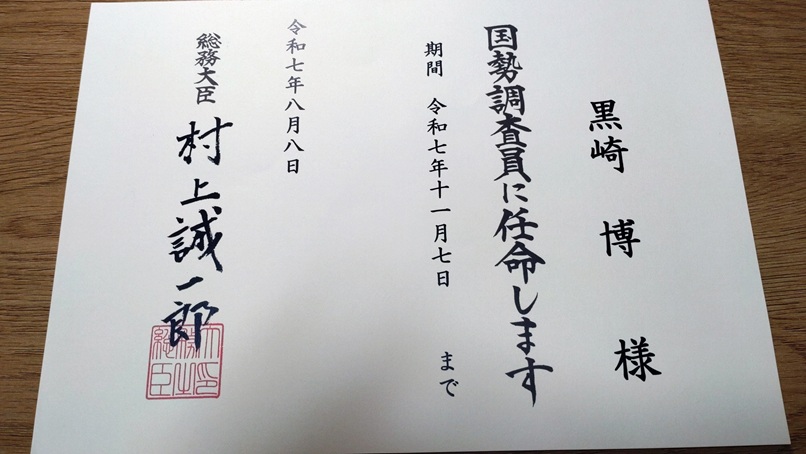 黒崎 博 様
国勢調査員に任命します
期間 令和七年十一月七日 まで
令和七年八月八日
総務大臣 村上誠一郎
総務大臣之印